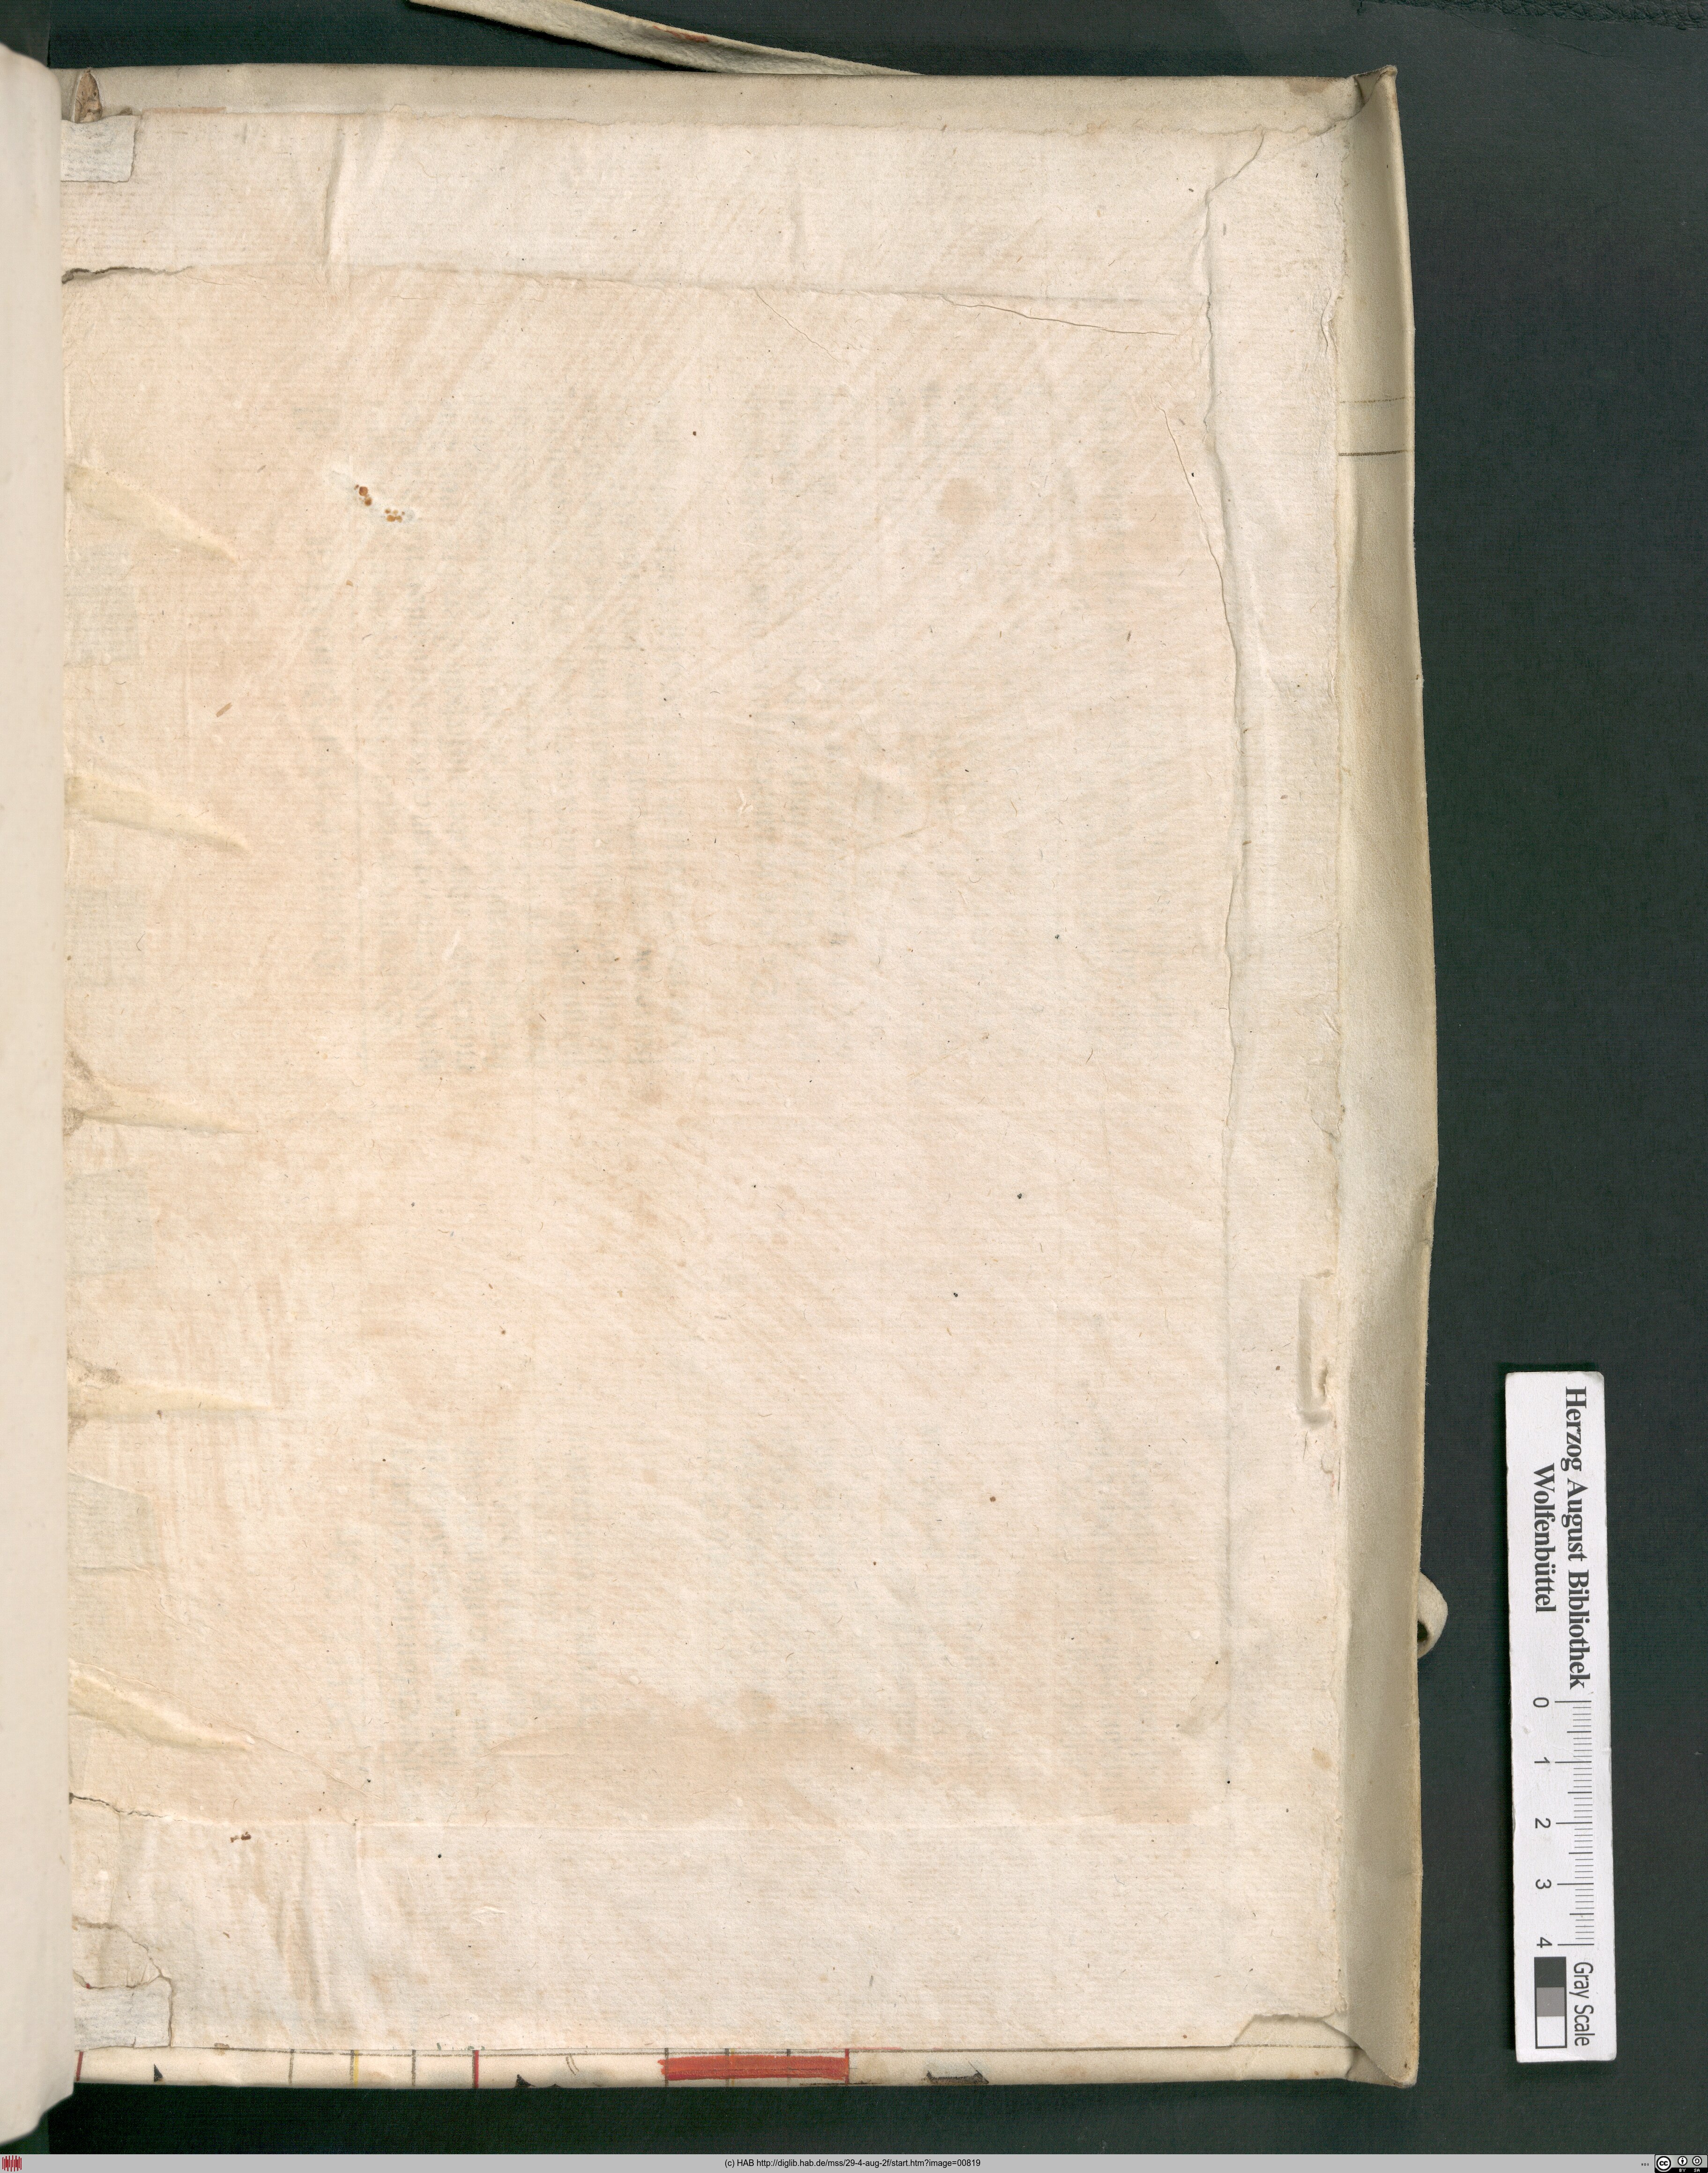 Herzog August Bibliothek
Wolfenbüttel
0 1 2 3 4
Gray Scale
(c) HAB http://diglib.hab.de/mss/29-4-aug-2f/start.htm?image=00819